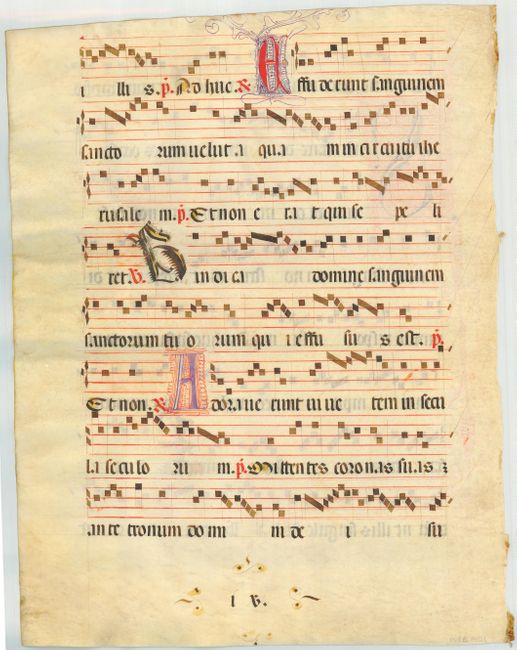 illis. p. Adhuc. R Effuderunt sanguinem
sanctorum uelut aqua m in circuitu ihe
rusalem. p. Et non erat qui sepeli
ret. V. Vindica domine sanguinem
sanctorum tuorum qui effusus est. p.
Et non. R Adorauerunt uiuentem in secu
la seculorum. p. Mittentes coronas suas
ante tronum domini dei su
I V.